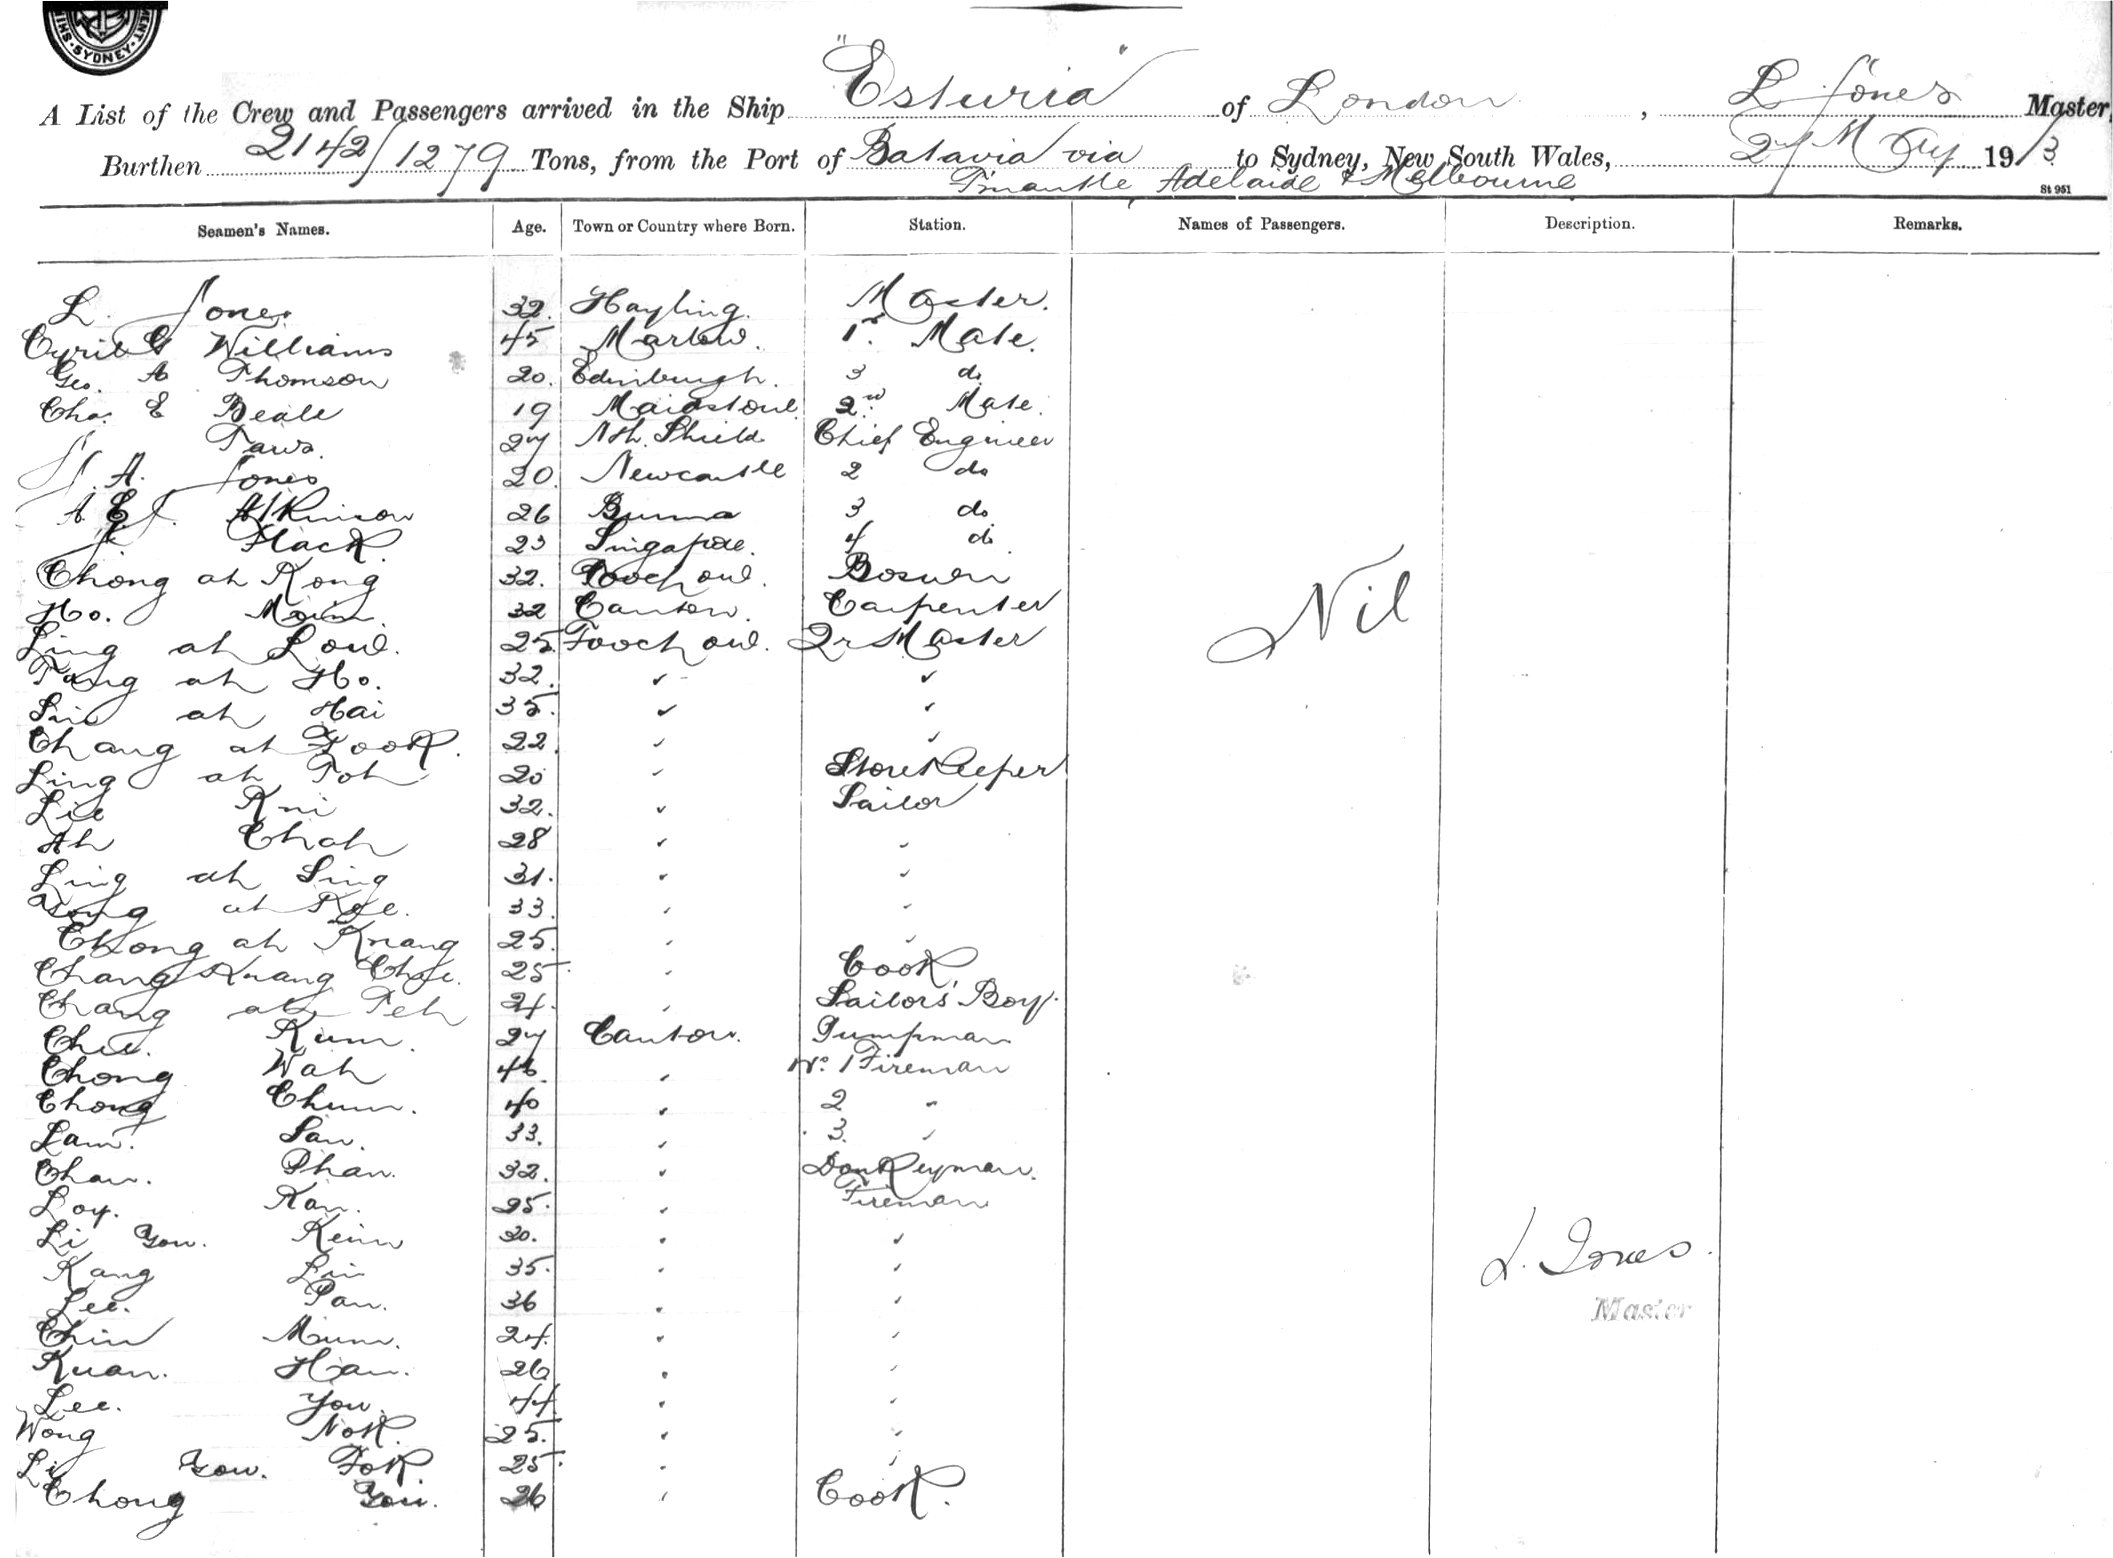 SYDNEY
A List of the Crew and Passengers arrived in the Ship "Esturia" of London, L Jones Master
Burthen 2142/1279 Tons, from the Port of Batavia via to Sydney, New South Wales, May 1913
Fmantle Adelaide & Melbourne
St 951
Seamen's Names. Age. Town or Country where Born. Station. Names of Passengers. Description. Remarks.
L. Jones. 32. Hayling. Master.
Cyril G Williams 45 Marlow. 1st Mate.
Geo. A Thomson 20. Edinburgh. 3 do
Chas. E Beale 19 Maidstone 2nd Mate.
Taws. 27 Nth. Shields Chief Engineer
A. Jones 20 Newcastle 2 do
A. E. J. Atkinson 26 Burma 3 do
J. Flack. 23 Singapore. 4 do
Chong ah Kong 32. Foochow. Bosun
Ho. 32 Canton. Carpenter
Ling ah Low. 25. Foochow. Qr Master
Tang ah Ho. 32. " "
ah Hai 35. " "
Chang ah Fook. 22 " "
Ling ah Toh 20 " Storekeeper
Lie Kni 32. " Sailor
Ah Chah 28 " "
Ling ah Sing 31. " "
ah Kee. 33. " "
Chong ah Knang 25. " "
Chang Knang 25 " Cook
Chang ah Teh 21. " Sailors' Boy.
Chee. Kum. 27 Canton. Pumpman
Chong Wah 46 " No. 1 Fireman
Chong Chum. 40 " 2 "
Lam. San. 33. " 3. "
Chan. Phan. 32. " Donkeyman.
Loy. Kan. 25. " Fireman
Li You. Keim 30. " "
Kang Lin 35. " "
Lee. Pan. 36 " "
Chin Mum. 24. " "
Kuan. Han. 26 " "
Lee. You. 44 " "
Wong Nok. 25. " "
Li You. Fok. 25 " "
Chong 26 " Cook.
Nil
L. Jones.
Master